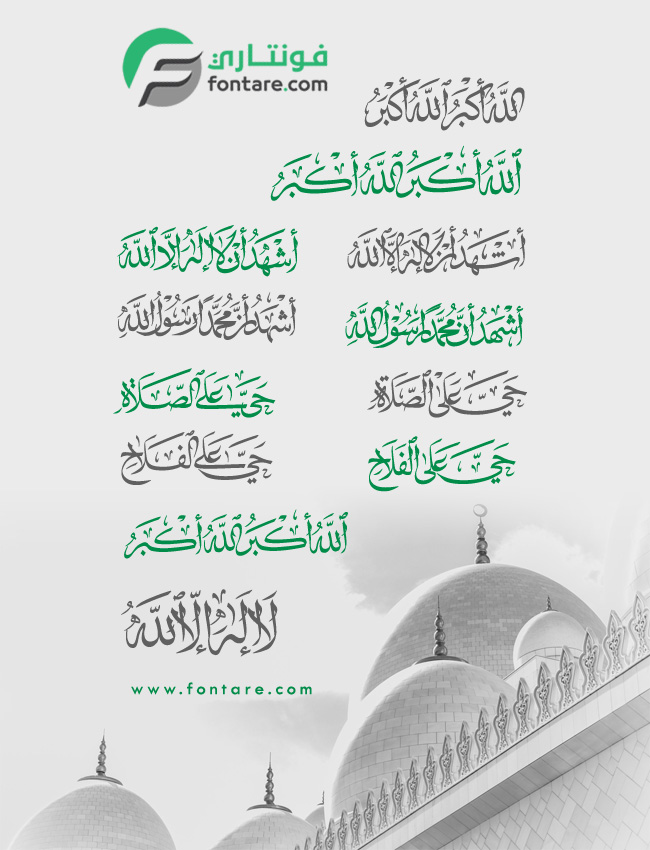 فونتاري
fontare.com
الله أكبر الله أكبر
ٱللَّهُ أَكْبَرُ ٱللَّهُ أَكْبَرُ
أشهد أن لا إله إلا الله
أشهد أن لا إله إلا الله
أشهد أن محمدا رسول الله
أشهد أن محمدا رسول الله
حي على الصلاة
حي على الصلاة
حي على الفلاح
حي على الفلاح
الله أكبر الله أكبر
لا إله إلا الله
www.fontare.com